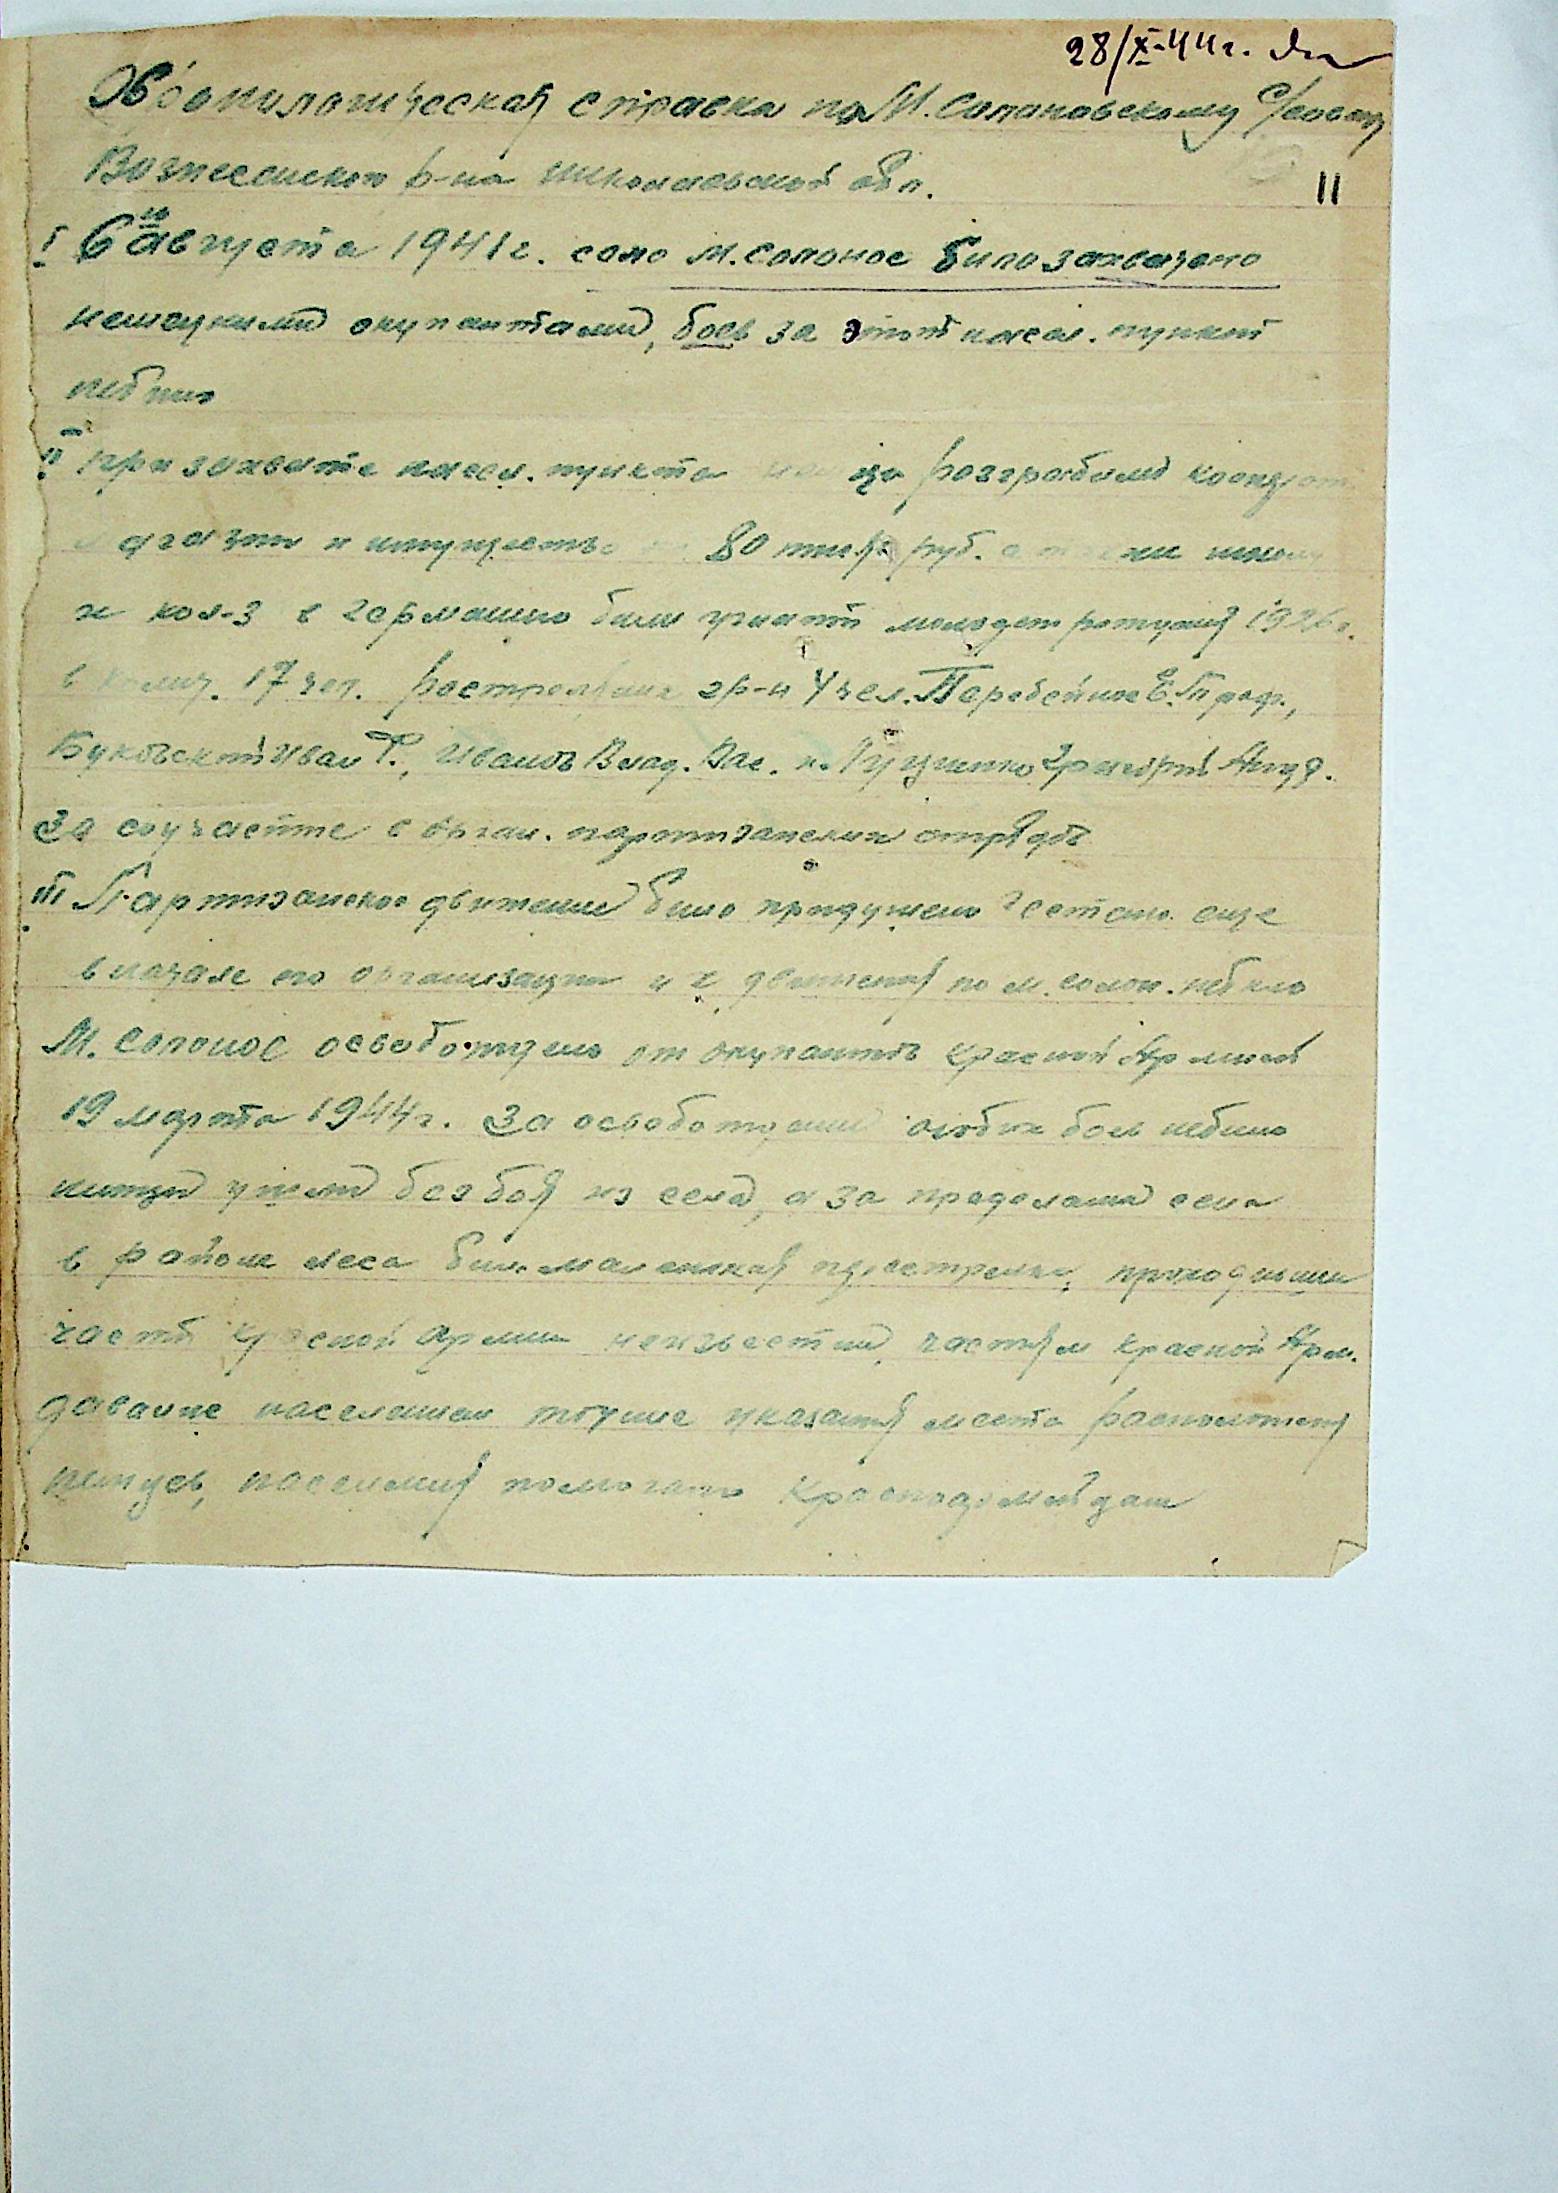 28/X-44г.
Хронологическая справка по М. Солоновскому с/совету
Вознесенского р-на Николаевской обл.
11
I 6го августа 1941г. село М. Солоное било захвачено
немецкими окупантами, боев за этот насел. пункт
небыло
II при захвате насел. пункта разграбили кооперат
имущество 80 тыс. руб. а также школу
и кол-з в Германию били угнаты молодеж рождения 1926г.
в колич. 17 чел. гр-н 4 чел. Перебейнос Е. Проф.,
Буковский Иван Т., Иванов Влад. Вас. и Григорий Анд.
За соучастие в орган. партизанских отрядов
III Партизанское движение било придушено гестапо еще
в начале его организации и х движения по м. солон. небыло
М. Солоное освобождено от окупантов Красной Армией
19 марта 1944г. За освобождение особых боев небыло
немцы ушли без боя из села, а за пределами села
в районе леса была маленькая перестрелка, проходившие
части Красной Армии неизвестны, частям Красной Арм.
давание населением точние указания места расположения
немцев, население помогало Красноармейцам